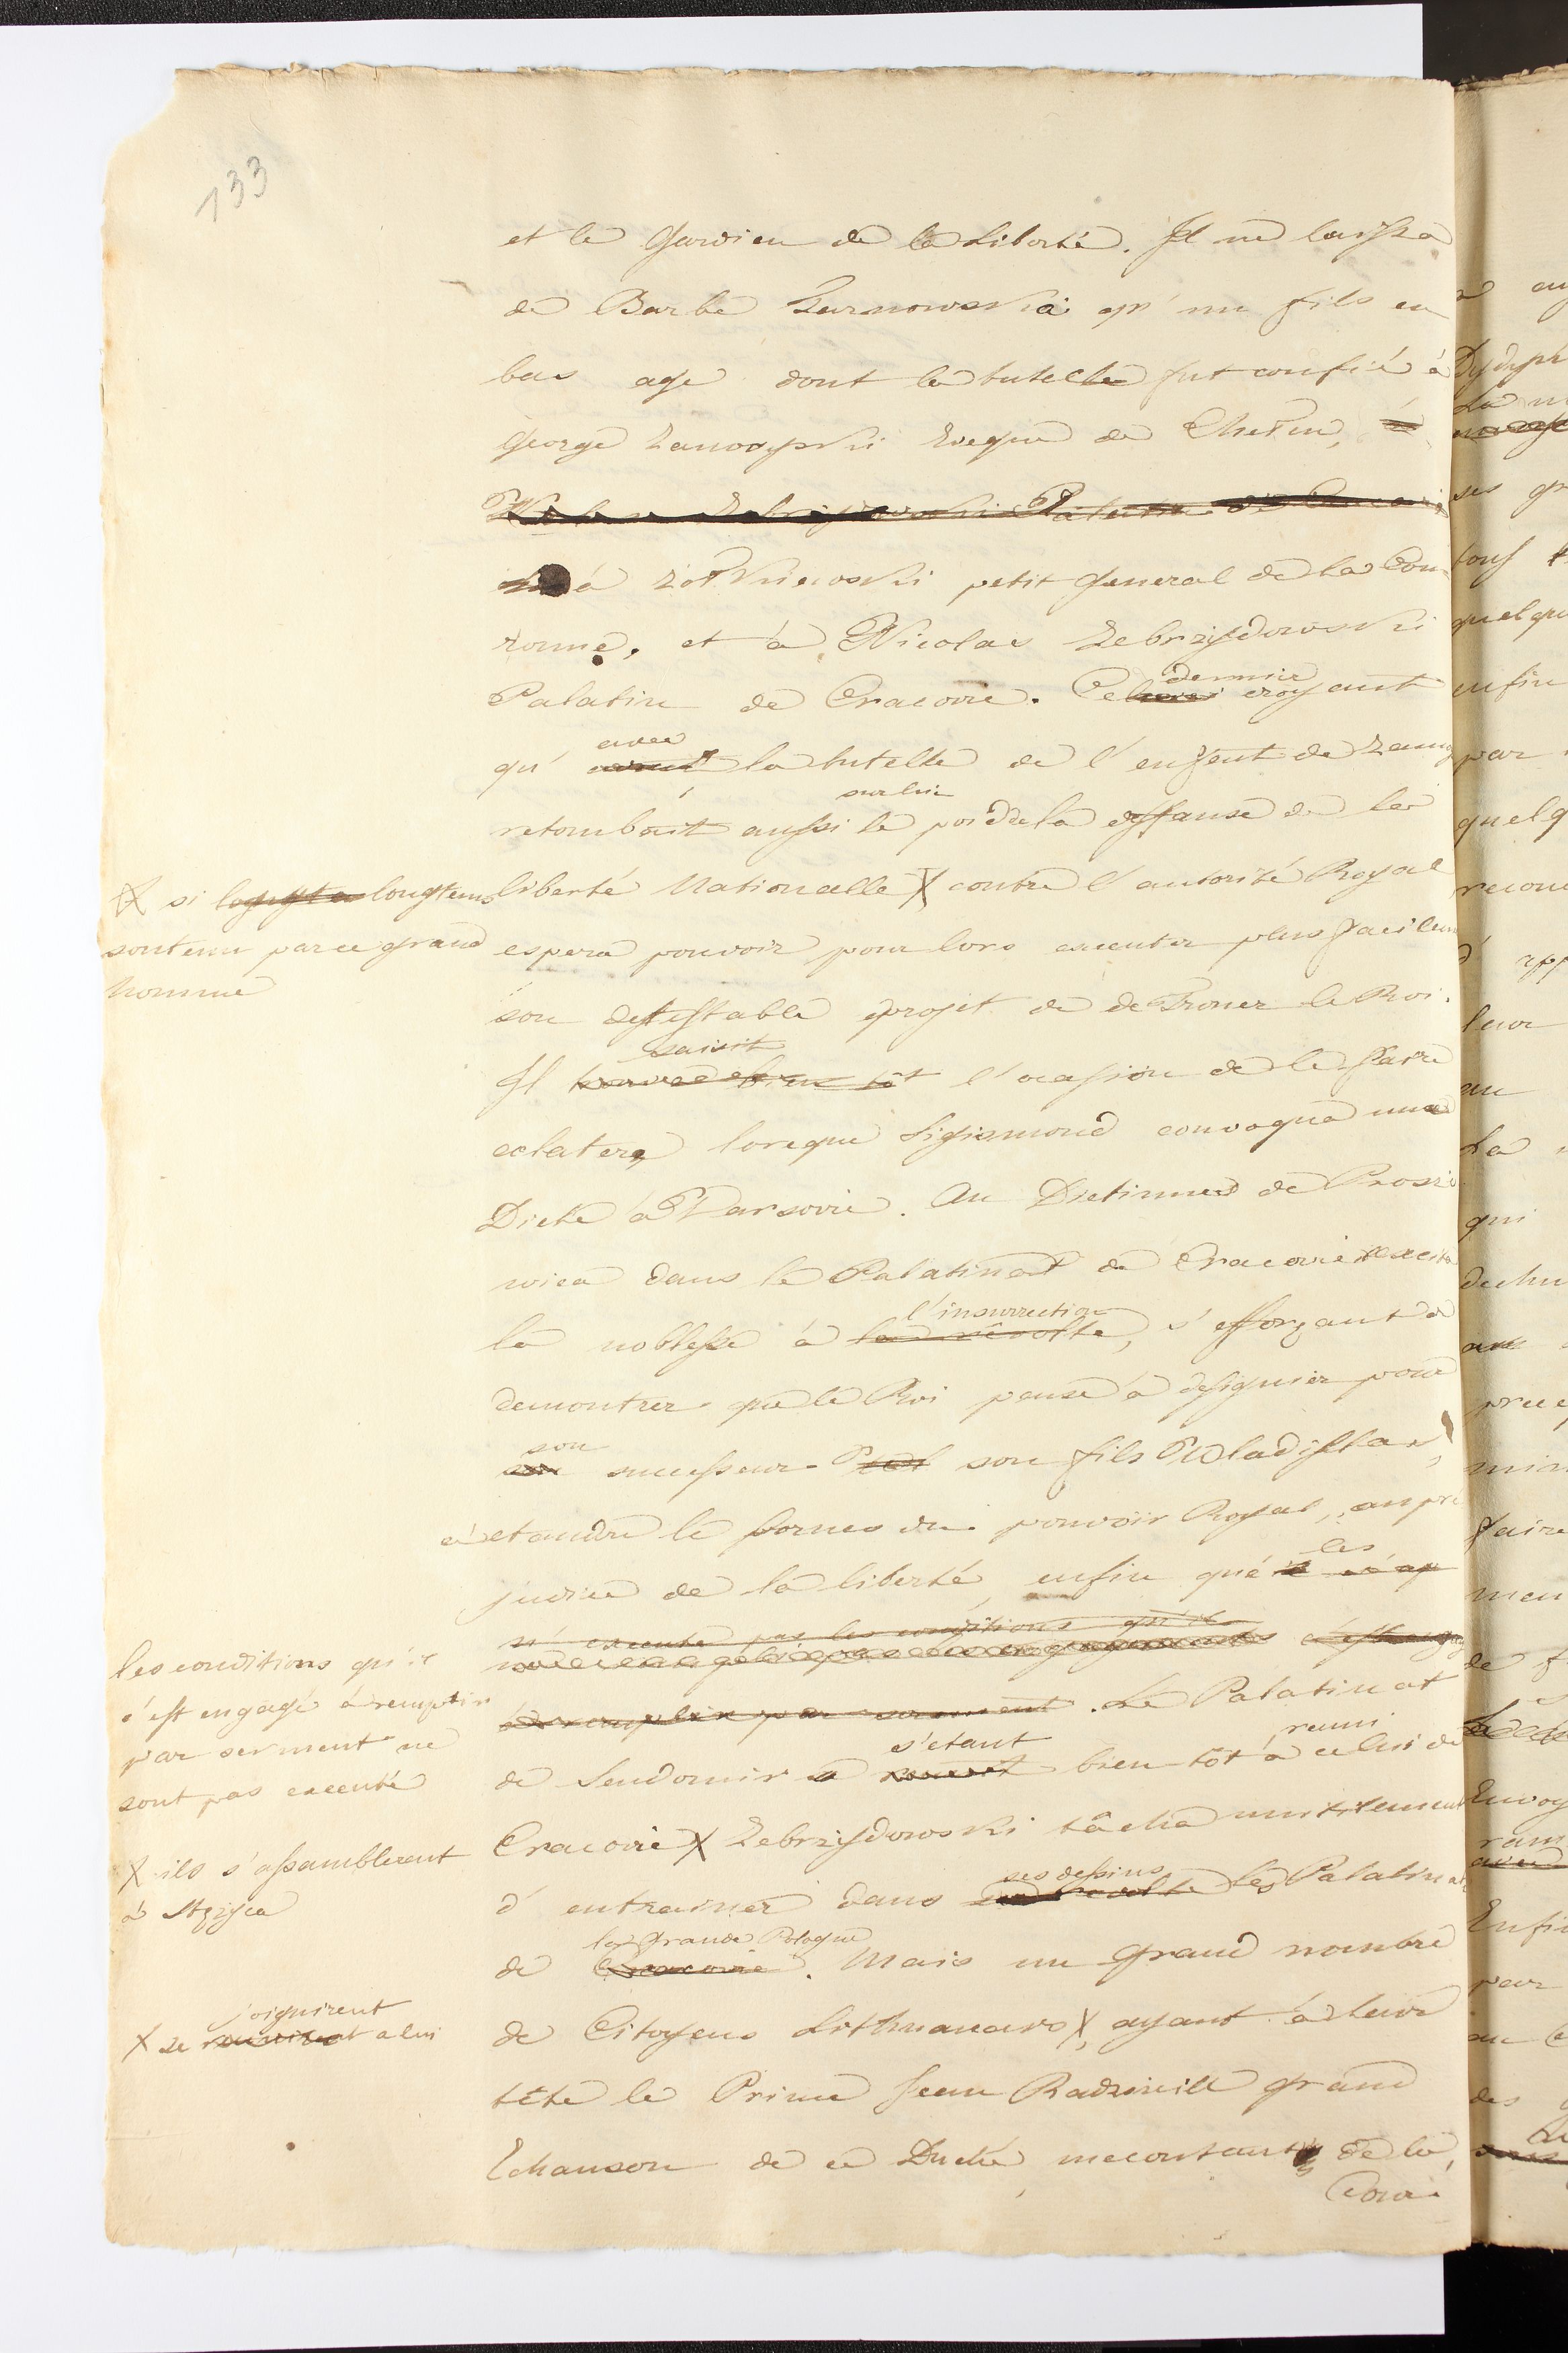 133
et le Gardien de la Liberté. Il ne laissa
de Barbe Tarnowska qu'un fils en
bas age dont la tutelle fut confié à
George Zamoyski Eveque de Chełm, à
à Żołkiewski petit General de la Cou-
ronne, et à Nicolas Zebrzydowski
dernier
Palatin de Cracovie. Ce croyant
avec
qu' la tutelle de l'enfent de Zamoy
sur lui
retomboit aussi le poid de la deffanse de la
liberté Nationalle X contre l'autorité Royal
X si longtems
soutenu par ce grand
homme
espera pouvoir pour lors executer plus facilem
son detestable projet de detroner le Roi.
saisit
Il l'ocasion de le faire
eclater, lorsque Sigismond convoqua une
Diete à Varsovie. Au Dietinnes de Proszo
wica dans le Palatinat de Cracovie il excita
l'insurrection
la noblesse à la révolte, s'efforçant de
demontrer que le Roi pense à designier pour
son
successeur son fils Wladislas,
à etandre le bornes du pouvoir Royal, au pré
les
judice de la liberté, enfin que
n'execute pas les conditions qu'il
les conditions qu'il
s'est engagé à remplir
par serment ne
sont pas executé
à remplir par serment. Le Palatinat
s'etant reuni
de Sendomir bien tôt à celui de
Cracovie X Zebrzydowski tâcha inutilement
X ils s'assamblerent
à Stężyca
ses dessins
d'entrainer dans sa revolte les Palatinats
la grande Pologne
de Cracovie. Mais un grand nombre
de Citoyens Lithuaniens X, ayant à leur
joignirent
X se reunirent a lui
tête le Prince Jean Radziwill grand
Echanson de ce Duché, mecontants de la
Cour